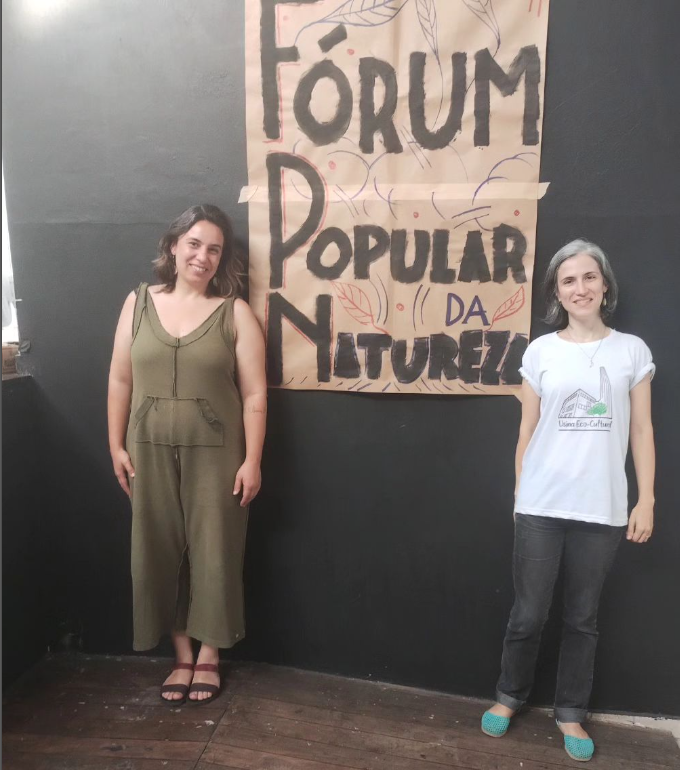 FÓRUM
POPULAR
DA
NATUREZA
Usina Eco-Cultural